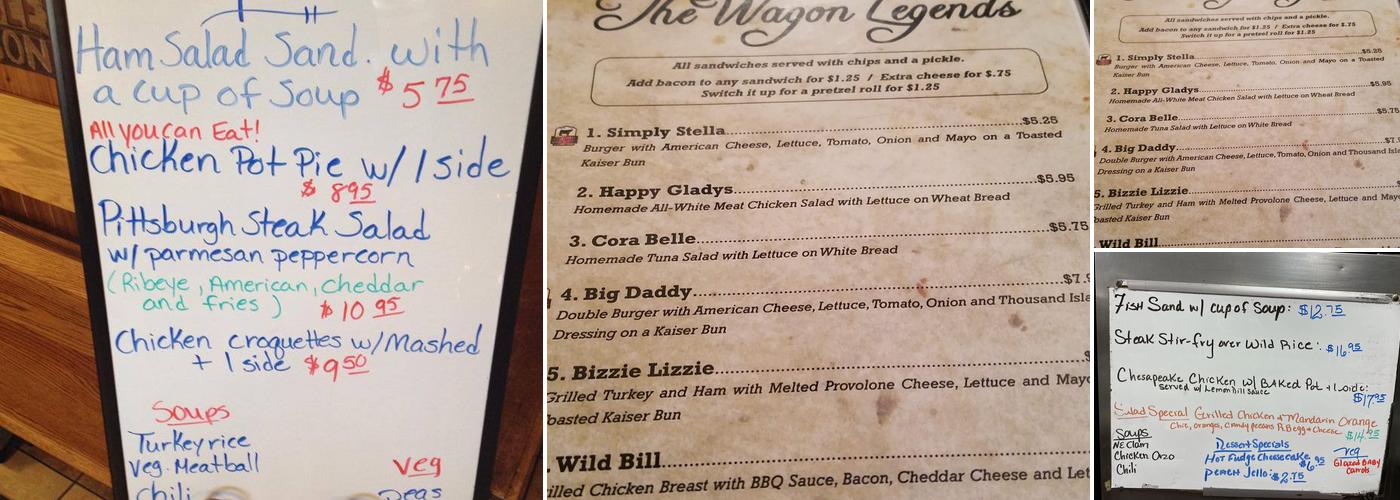 Ham Salad Sand. with
a cup of Soup $5 75
All you can Eat!
Chicken Pot Pie w/ 1 side
$ 8 95
Pittsburgh Steak Salad
w/ parmesan peppercorn
(Ribeye, American, cheddar
and fries) $ 10 95
Chicken croquettes w/ Mashed
+ 1 side $9 50
Soups
Turkey rice
Veg. Meatball
Veg
Chili
Peas
The Wagon Legends
All sandwiches served with chips and a pickle.
Add bacon to any sandwich for $1.25 / Extra cheese for $.75
Switch it up for a pretzel roll for $1.25
1. Simply Stella $5.25
Burger with American Cheese, Lettuce, Tomato, Onion and Mayo on a Toasted
Kaiser Bun
2. Happy Gladys $5.95
Homemade All-White Meat Chicken Salad with Lettuce on Wheat Bread
3. Cora Belle $5.75
Homemade Tuna Salad with Lettuce on White Bread
4. Big Daddy $7.
Double Burger with American Cheese, Lettuce, Tomato, Onion and Thousand Isla
Dressing on a Kaiser Bun
5. Bizzie Lizzie $
Grilled Turkey and Ham with Melted Provolone Cheese, Lettuce and Mayo
oasted Kaiser Bun
. Wild Bill
illed Chicken Breast with BBQ Sauce, Bacon, Cheddar Cheese and Let
All sandwiches served with chips and a pickle.
Add bacon to any sandwich for $1.25 / Extra cheese for $.75
Switch it up for a pretzel roll for $1.25
1. Simply Stella $5.25
Burger with American Cheese, Lettuce, Tomato, Onion and Mayo on a Toasted
Kaiser Bun
2. Happy Gladys $5.95
Homemade All-White Meat Chicken Salad with Lettuce on Wheat Bread
3. Cora Belle $5.75
Homemade Tuna Salad with Lettuce on White Bread
4. Big Daddy $7.
Double Burger with American Cheese, Lettuce, Tomato, Onion and Thousand Isla
Dressing on a Kaiser Bun
5. Bizzie Lizzie
Grilled Turkey and Ham with Melted Provolone Cheese, Lettuce and Mayo
oasted Kaiser Bun
Wild Bill
Fish Sand w/ cup of Soup: $12.75
Steak Stir-fry over Wild Rice: $16.95
Chesapeake Chicken w/ Baked Pot + 1 side:
served w/ Lemon hill sauce $17.95
Salad Special Grilled Chicken + Mandarin Orange
Chic, oranges, candy pecans R.B egg + Cheese $14.95
Soups
NE Clam
Chicken Orzo
Chili
Dessert Specials
Hot Fudge Cheesecake $6.95
Peach Jello: $2.75
Veg
Glazed Baby
Carrots